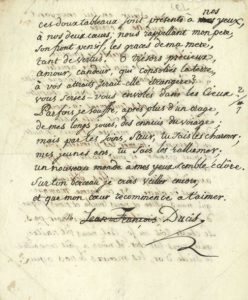 nos
ces doux tableaux sont présents à mes yeux,
à nos deux cœurs, nous rappellant mon père,
son front pensif, les graces de ma mere,
tant de vertus. O trésors précieux,
amour, candeur, qui consoliez la terre,
à vos attraits seroit-elle étrangere?
vous seriez-vous envolés dans les Cieux?
Parfois je souffre, après plus d'un orage,
de mes longs jours, des ennuis du voyage;
mais par tes soins, Sœur, tu sais les charmer,
mes jeunes ans, tu sais les rallumer.
un nouveau monde à mes yeux semble éclore.
Sur ton berceau je crois veiller encore,
et que mon cœur recommence à t'aimer.
Jean-François Ducis.